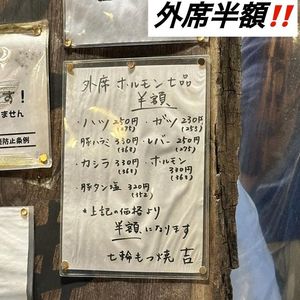 外席半額‼️
す!
ません
防止条例
外席 ホルモン七品
半額
・ハツ 250円 ・ガツ 230円
(275) (253)
豚ハラミ 330円 ・レバー 250円
(363) (275)
・カシラ 330円 ・ホルモン
(363) 330円
(363)
豚タン塩 320円
(352)
*上記の価格より
半額になります
七輪もつ焼 吉